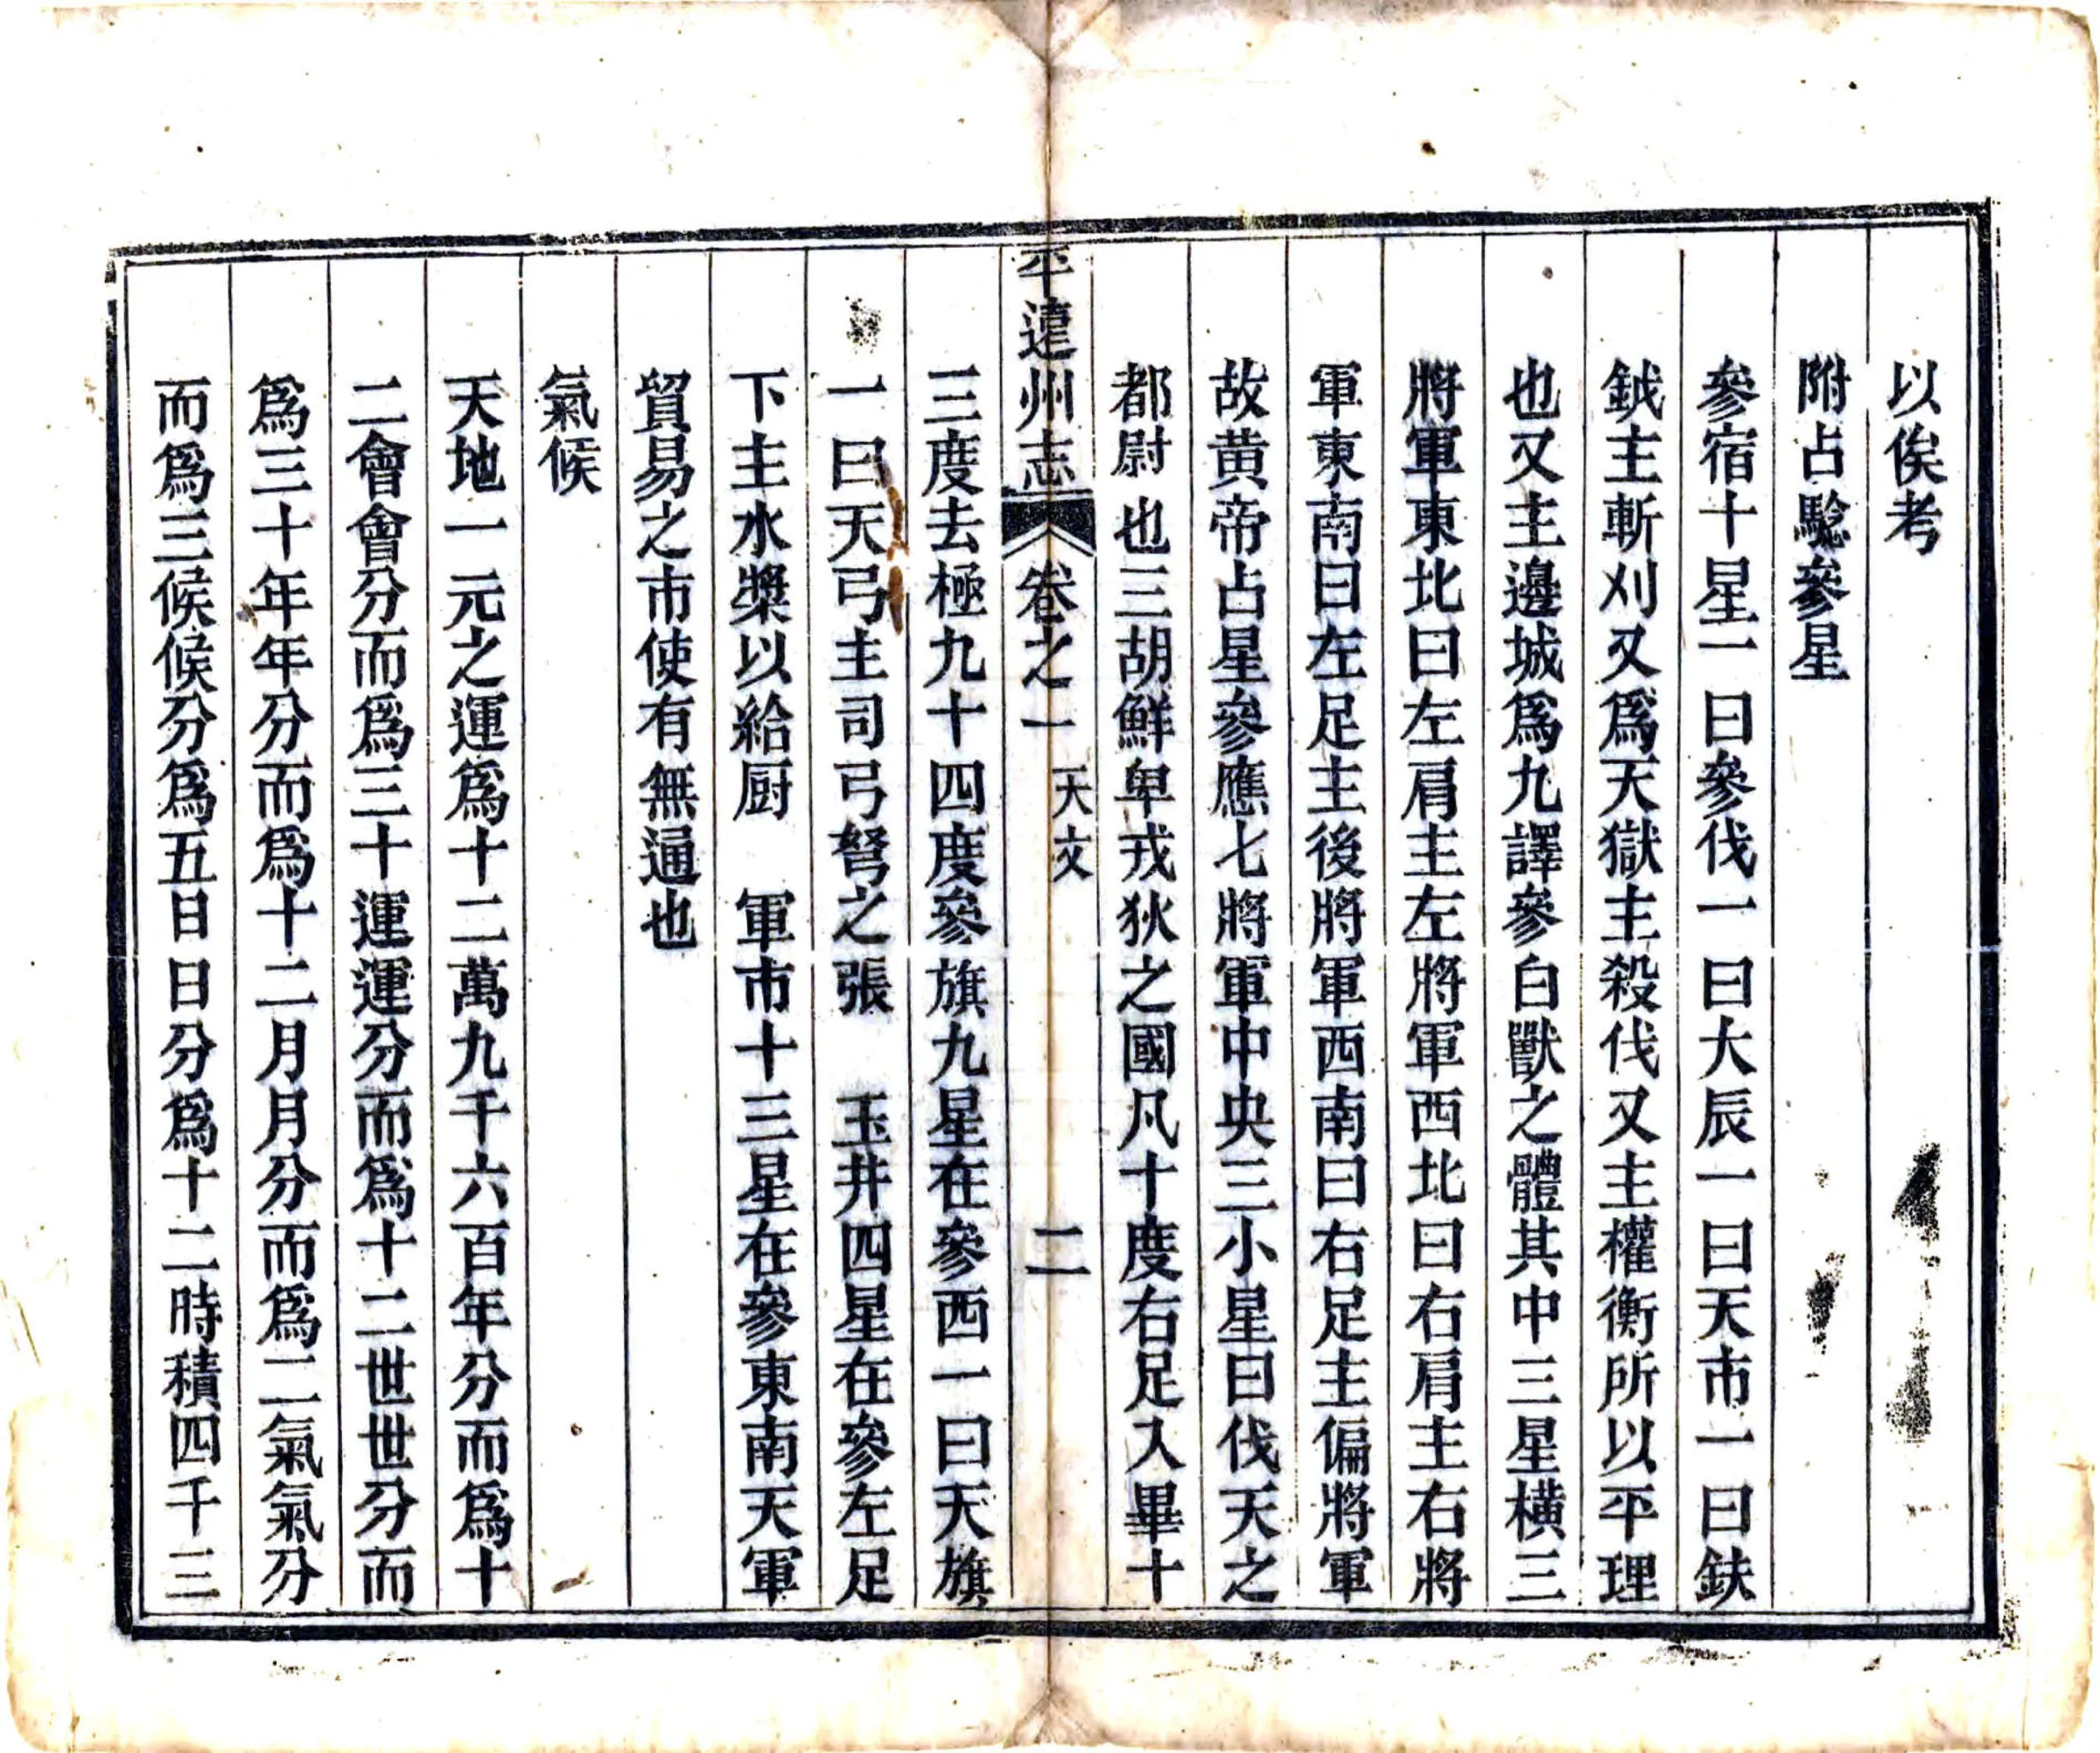 以俟考
附占騐參星
參宿十星一曰參伐一曰大辰一曰天市一曰鈇
鉞主斬刈又爲天獄主殺伐又主權衡所以平理
也又主邊城爲九譯參白獸之體其中三星橫三
將軍東北曰左肩主左將軍西北曰右肩主右將
軍東南曰左足主後將軍西南曰右足主偏將軍
故黄帝占星參應七將軍中央三小星曰伐天之
都尉也三胡鮮卑戎狄之國凡十度右足入畢十
平遠州志 卷之一 天文 二
三度去極九十四度參旗九星在參西一曰天旗
一曰天弓主司弓弩之張 玉井四星在參左足
下主水漿以給厨 軍市十三星在參東南天軍
貿易之市使有無通也
氣候
天地一元之運爲十二萬九千六百年分而爲十
二會會分而爲三十運運分而爲十二世世分而
爲三十年年分而爲十二月月分而爲二氣氣分
而爲三候候分爲五日日分爲十二時積四千三